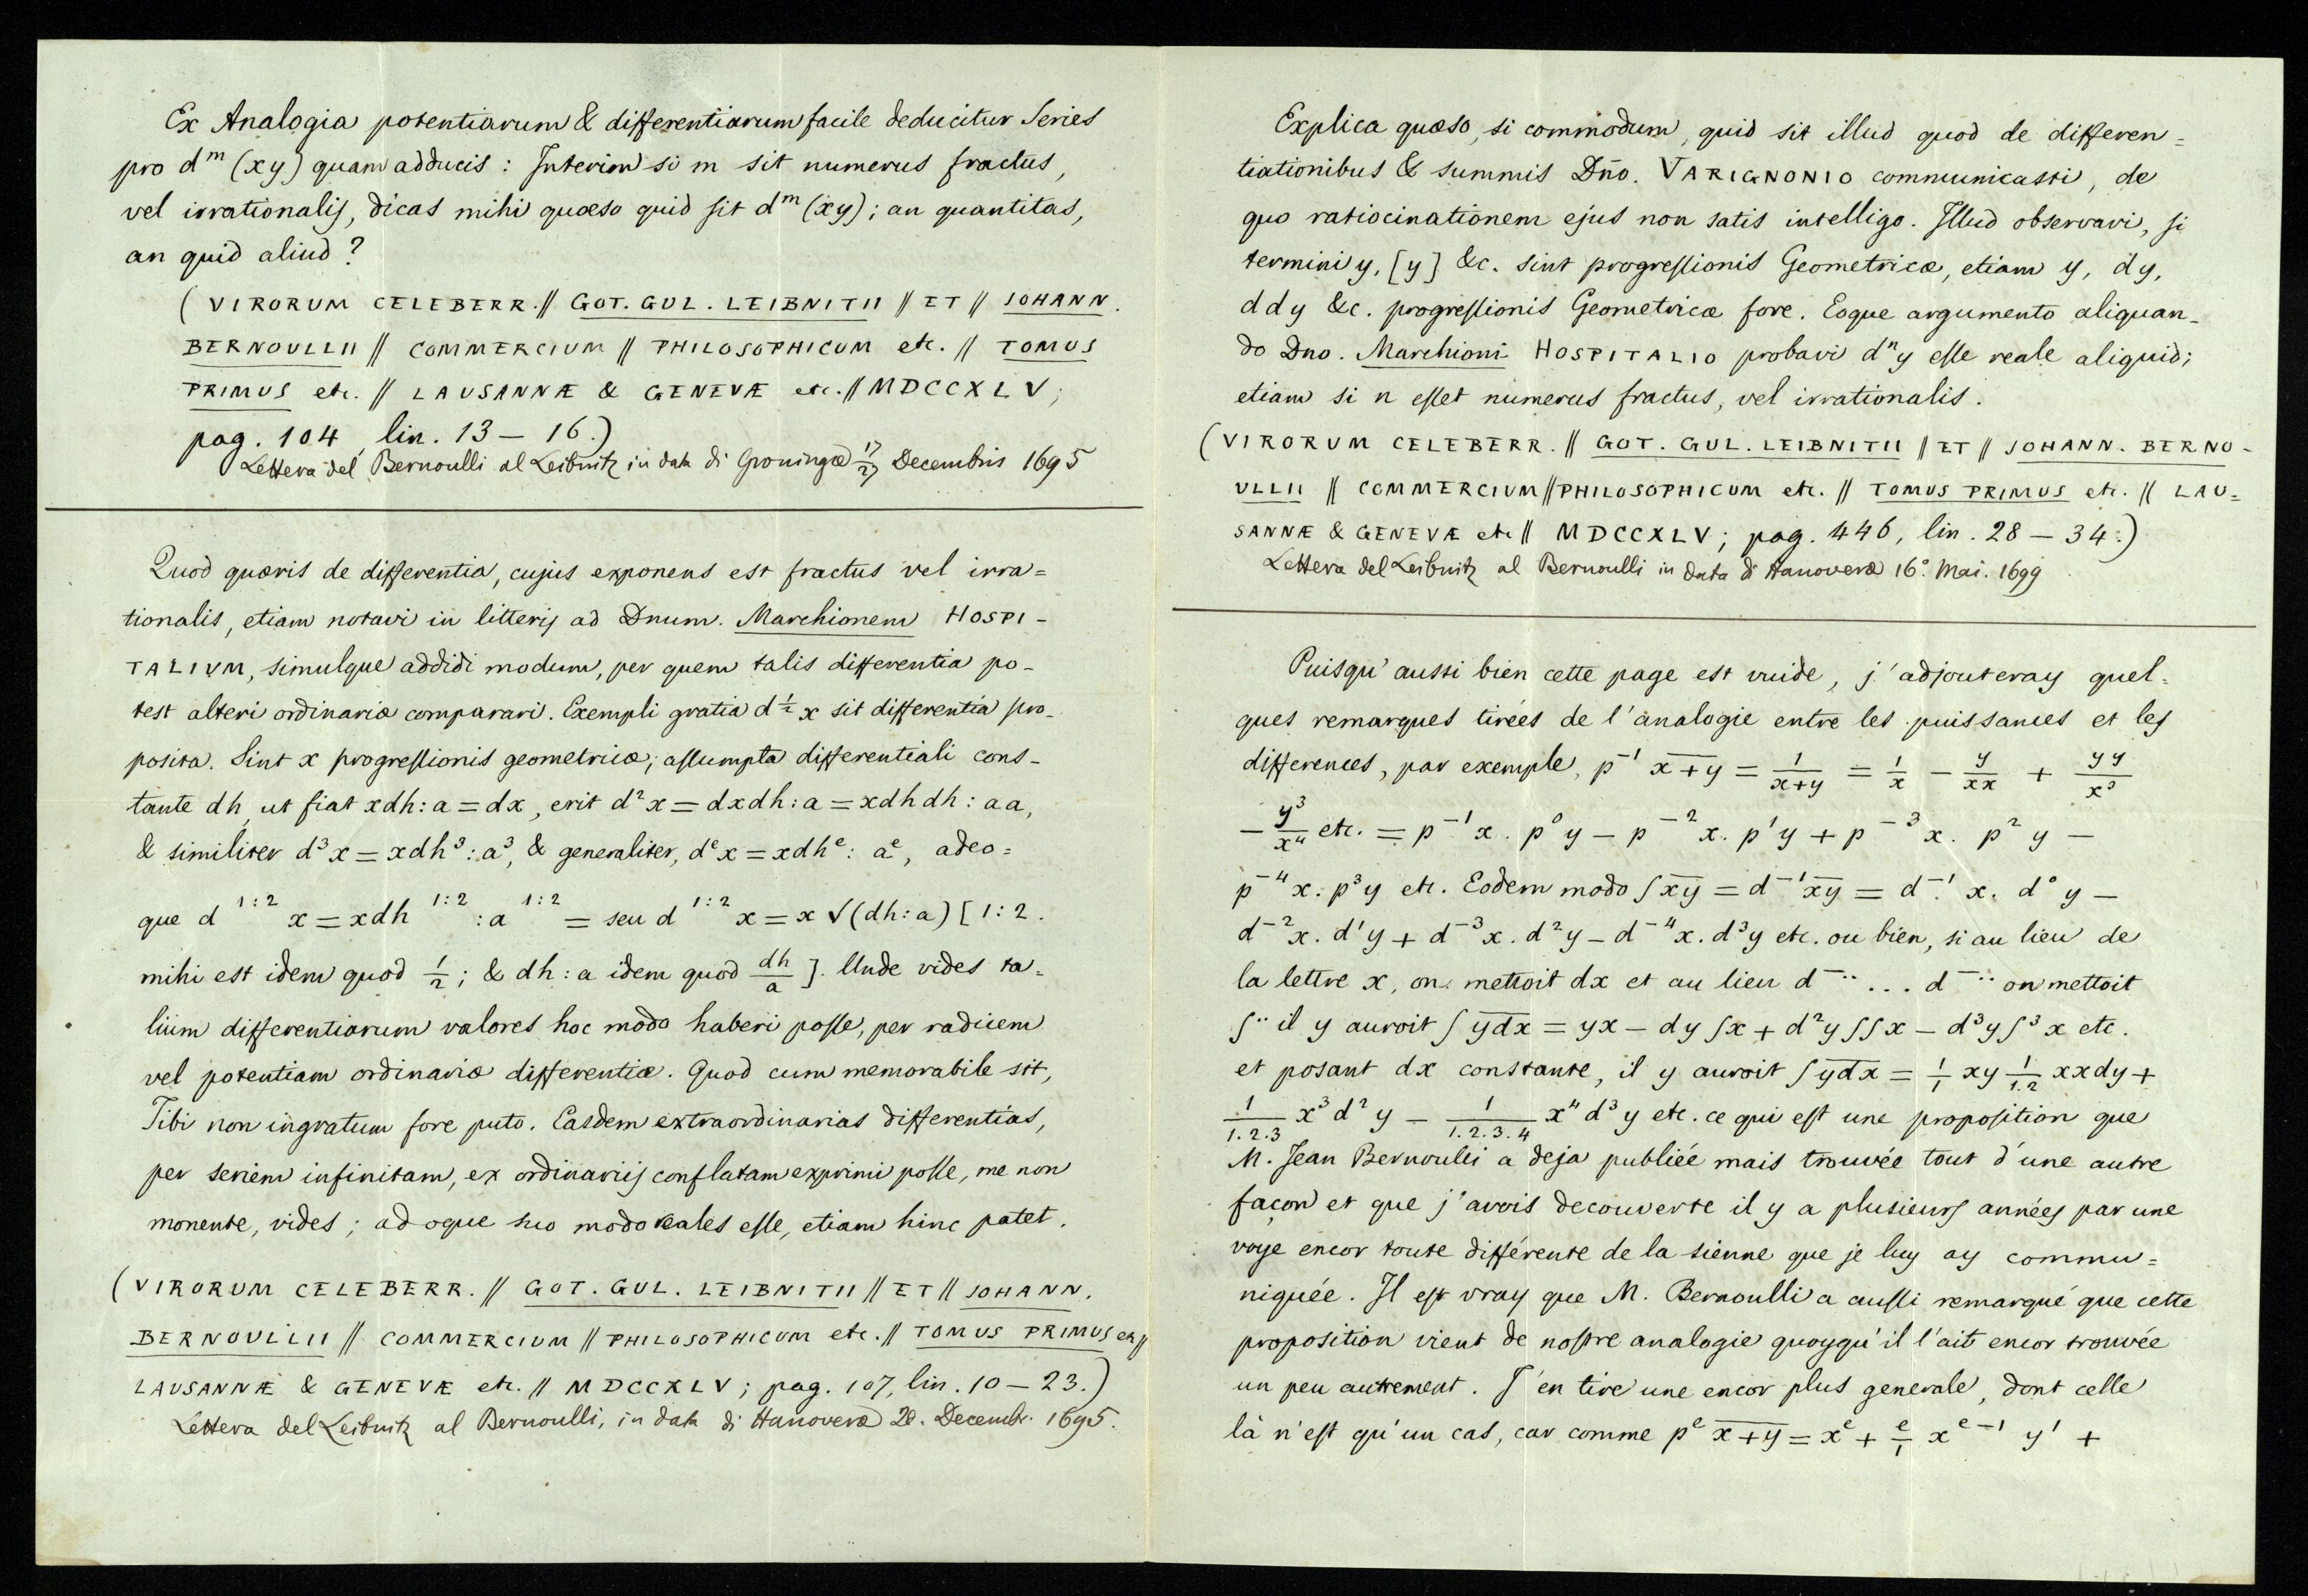 Ex Analogia potentiarum & differentiarum facile deducitur Series
pro dᵐ (xy) quam adducis : Interim si m sit numerus fractus,
vel irrationalis, dicas mihi quæso quid sit dᵐ (xy) ; an quantitas,
an quid aliud ?
( VIRORUM CELEBERR. // GOT. GUL. LEIBNITII // ET // JOHANN.
BERNOULLII // COMMERCIUM // PHILOSOPHICUM etc. // TOMUS
PRIMUS etc. // LAUSANNÆ & GENEVÆ etc. // MDCCXLV ;
pag. 104, lin. 13 – 16.)
Lettera del Bernoulli al Leibnitz in data di Groningæ 17/27 Decembris 1695
Quod quæris de differentia, cujus exponens est fractus vel irra=
tionalis, etiam notavi in litteris ad Dnum. Marchionem HOSPI-
TALIUM, simulque addidi modum, per quem talis differentia po-
test alteri ordinariæ comparari. Exempli gratia d½ x sit differentia pro-
posita. Sint x progressionis geometricæ ; assumpta differentiali cons-
tante dh, ut fiat xdh : a = dx, erit d²x = dxdh : a = xdhdh : aa,
& similiter d³x = xdh³ : a³, & generaliter, dᵉx = xdhᵉ : aᵉ, adeo=
que d¹:² x = xdh¹:² : a¹:² = seu d¹:² x = x √(dh : a) [ 1 : 2.
mihi est idem quod 1/2 ; & dh : a idem quod dh/a ]. Unde vides ta=
lium differentiarum valores hoc modo haberi posse, per radicem
vel potentiam ordinariæ differentiæ. Quod cum memorabile sit,
Tibi non ingratum fore puto. Easdem extraordinarias differentias,
per seriem infinitam, ex ordinariis conflatam exprimi posse, me non
monente, vides ; ad oque suo modo reales esse, etiam hinc patet.
( VIRORUM CELEBERR. // GOT. GUL. LEIBNITII // ET // JOHANN.
BERNOULLII // COMMERCIUM // PHILOSOPHICUM etc. // TOMUS PRIMUS etc //
LAUSANNÆ & GENEVÆ etc. // MDCCXLV ; pag. 107, lin. 10 – 23.)
Lettera del Leibnitz al Bernoulli, in data di Hanoveræ 28. Decembr. 1695.
Explica quæso, si commodum, quid sit illud quod de differen=
tiationibus & summis Dño. VARIGNONIO communicasti, de
quo ratiocinationem ejus non satis intelligo. Illud observavi, si
termini y, [y] &c. sint progressionis Geometricæ, etiam y, dy,
ddy &c. progressionis Geometricæ fore. Eoque argumento aliquan-
do Dno. Marchioni HOSPITALIO probavi dⁿy esse reale aliquid ;
etiam si n esset numerus fractus, vel irrationalis.
( VIRORUM CELEBERR. // GOT. GUL. LEIBNITII // ET // JOHANN. BERNO-
ULLII // COMMERCIUM // PHILOSOPHICUM etc. // TOMUS PRIMUS etc. // LAU=
SANNÆ & GENEVÆ etc // MDCCXLV ; pag. 446, lin. 28 – 34.)
Lettera del Leibnitz al Bernoulli in data di Hanoveræ 16°. Mai. 1699
Puisqu'aussi bien cette page est vuide, j'adjouteray quel=
ques remarques tirées de l'analogie entre les puissances et les
differences, par exemple, p⁻¹ x+y = 1/(x+y) = 1/x – y/xx + yy/x³
– y³/x⁴ etc. = p⁻¹x. p⁰y – p⁻²x. p¹y + p⁻³x. p²y –
p⁻⁴x. p³y etc. Eodem modo ∫xy = d⁻¹xy = d⁻¹ x. d⁰y –
d⁻²x. d¹y + d⁻³x. d²y – d⁻⁴x. d³y etc. ou bien, si au lieu de
la lettre x, on mettoit dx et au lieu d⁻·· ... d⁻·· on mettoit
∫·· il y auroit ∫ydx = yx – dy∫x + d²y∫∫x – d³y∫³x etc.
et posant dx constante, il y auroit ∫ydx = 1/1 xy 1/1.2 xxdy +
1/1.2.3 x³d²y – 1/1.2.3.4 x⁴d³y etc. ce qui est une proposition que
M. Jean Bernoulli a deja publiée mais trouvée tout d'une autre
façon et que j'avois decouverte il y a plusieurs années par une
voye encor toute différente de la sienne que je luy ay commu=
niquée. Il est vray que M. Bernoulli a aussi remarqué que cette
proposition vient de nostre analogie quoyqu'il l'ait encor trouvée
un peu autrement. J'en tire une encor plus generale, dont celle
là n'est qu'un cas, car comme pᵉ x+y = xᵉ + e/1 xᵉ⁻¹ y¹ +